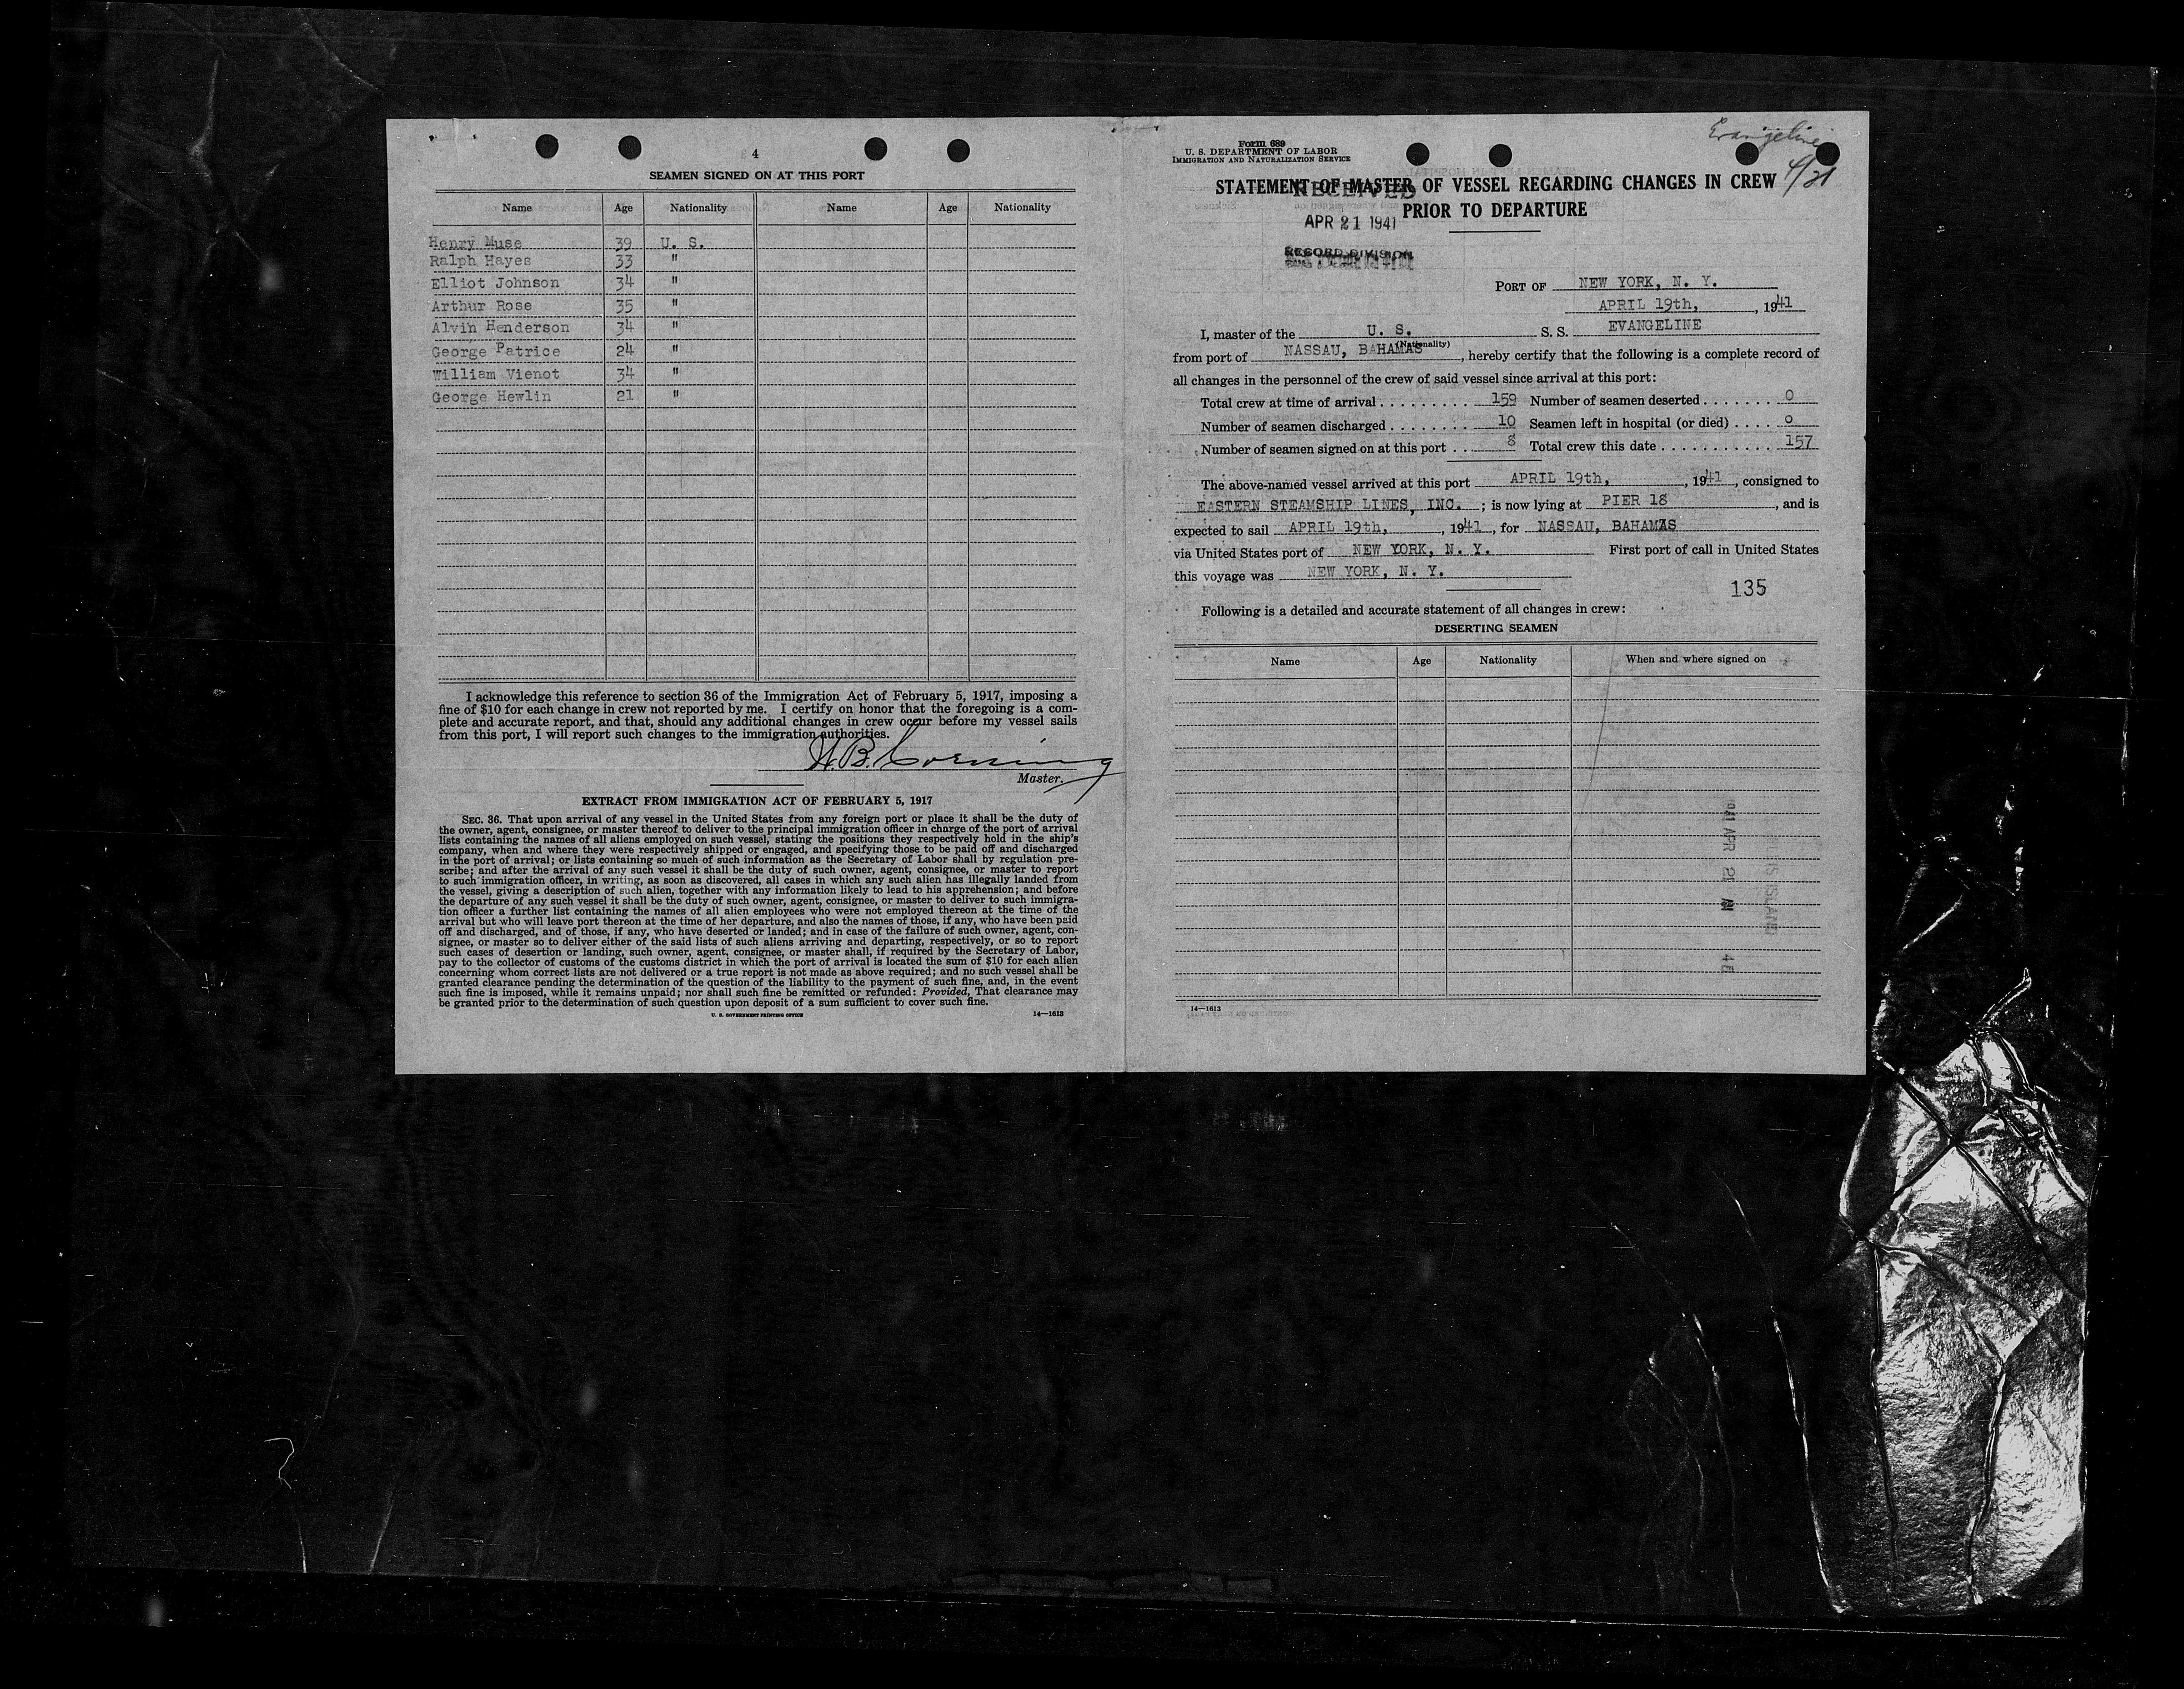 4
SEAMEN SIGNED ON AT THIS PORT
Name Age Nationality Name Age Nationality
Henry Muse 39 U. S.
Ralph Hayes 33 "
Elliot Johnson 34 "
Arthur Rose 35 "
Alvin Henderson 34 "
George Patrice 24 "
William Vienot 34 "
George Hewlin 21 "
I acknowledge this reference to section 36 of the Immigration Act of February 5, 1917, imposing a
fine of $10 for each change in crew not reported by me. I certify on honor that the foregoing is a com-
plete and accurate report, and that, should any additional changes in crew occur before my vessel sails
from this port, I will report such changes to the immigration authorities.
Master.
EXTRACT FROM IMMIGRATION ACT OF FEBRUARY 5, 1917
SEC. 36. That upon arrival of any vessel in the United States from any foreign port or place it shall be the duty of
the owner, agent, consignee, or master thereof to deliver to the principal immigration officer in charge of the port of arrival
lists containing the names of all aliens employed on such vessel, stating the positions they respectively hold in the ship's
company, when and where they were respectively shipped or engaged, and specifying those to be paid off and discharged
in the port of arrival; or lists containing so much of such information as the Secretary of Labor shall by regulation pre-
scribe; and after the arrival of any such vessel it shall be the duty of such owner, agent, consignee, or master to report
to such immigration officer, in writing, as soon as discovered, all cases in which any such alien has illegally landed from
the vessel, giving a description of such alien, together with any information likely to lead to his apprehension; and before
the departure of any such vessel it shall be the duty of such owner, agent, consignee, or master to deliver to such immigra-
tion officer a further list containing the names of all alien employees who were not employed thereon at the time of the
arrival but who will leave port thereon at the time of her departure, and also the names of those, if any, who have been paid
off and discharged, and of those, if any, who have deserted or landed; and in case of the failure of such owner, agent, con-
signee, or master so to deliver either of the said lists of such aliens arriving and departing, respectively, or so to report
such cases of desertion or landing, such owner, agent, consignee, or master shall, if required by the Secretary of Labor,
pay to the collector of customs of the customs district in which the port of arrival is located the sum of $10 for each alien
concerning whom correct lists are not delivered or a true report is not made as above required; and no such vessel shall be
granted clearance pending the determination of the question of the liability to the payment of such fine, and, in the event
such fine is imposed, while it remains unpaid; nor shall such fine be remitted or refunded: Provided, That clearance may
be granted prior to the determination of such question upon deposit of a sum sufficient to cover such fine.
U. S. GOVERNMENT PRINTING OFFICE 14—1613
Evangeline
4/21
Form 689
U. S. DEPARTMENT OF LABOR
IMMIGRATION AND NATURALIZATION SERVICE
STATEMENT OF MASTER OF VESSEL REGARDING CHANGES IN CREW
PRIOR TO DEPARTURE
RECEIVED
APR 21 1941
RECORD DIVISION
PORT OF NEW YORK, N. Y.
APRIL 19th, , 1941
I, master of the U. S. S. S. EVANGELINE
(Nationality)
from port of NASSAU, BAHAMAS , hereby certify that the following is a complete record of
all changes in the personnel of the crew of said vessel since arrival at this port:
Total crew at time of arrival . . . . . . . . . 159 Number of seamen deserted . . . . . . . 0
Number of seamen discharged . . . . . . . . 10 Seamen left in hospital (or died) . . . . 0
Number of seamen signed on at this port . . 8 Total crew this date . . . . . . . . . . . 157
The above-named vessel arrived at this port APRIL 19th, , 1941 , consigned to
EASTERN STEAMSHIP LINES, INC. ; is now lying at PIER 18 , and is
expected to sail APRIL 19th, , 1941 , for NASSAU, BAHAMAS
via United States port of NEW YORK, N. Y. First port of call in United States
this voyage was NEW YORK, N. Y.
135
Following is a detailed and accurate statement of all changes in crew:
DESERTING SEAMEN
Name Age Nationality When and where signed on
14—1613